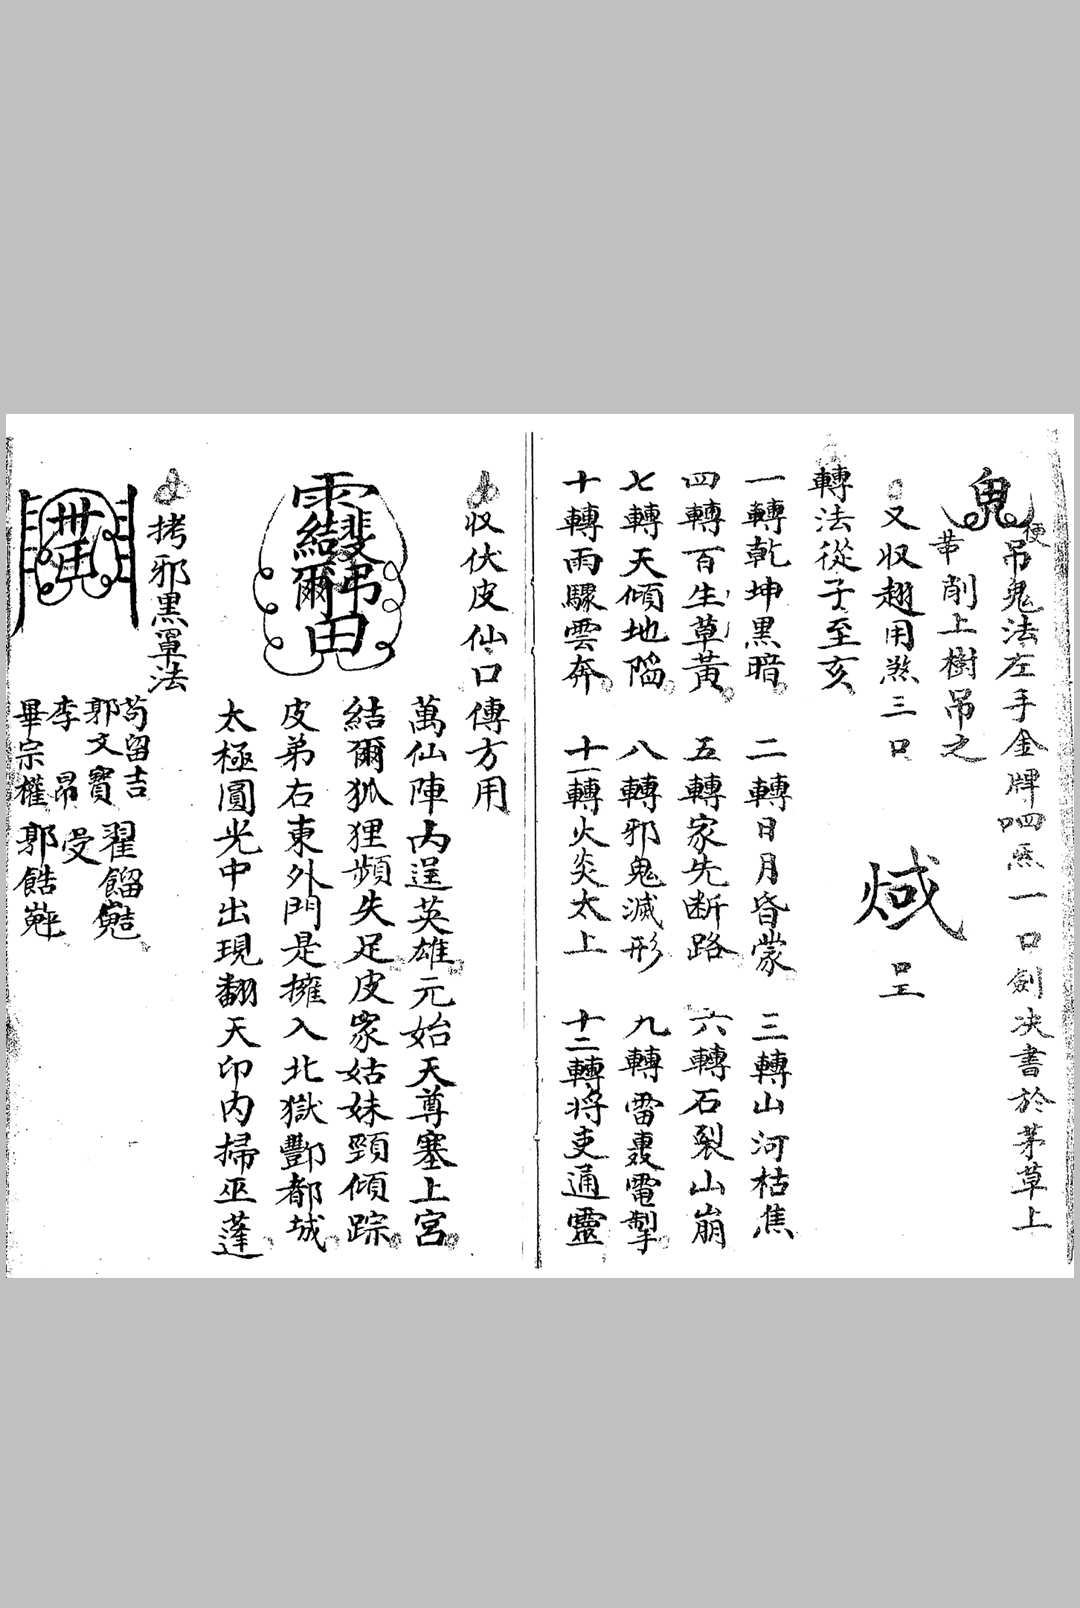 鬼
吊鬼法左手金牌呬炁一口劍决書於茅草上
便
削上樹吊之
又収趙用煞三口
呈
轉法從子至亥
一轉乾坤黑暗 二轉日月昏蒙 三轉山河枯焦
四轉百生草黃 五轉家先断路 六轉石裂山崩
七轉天傾地陷 八轉邪鬼滅形 九轉雷轟電掣
十轉雨驟雲奔 十一轉火炎太上 十二轉将吏通靈
収伏皮仙口傳方用
萬仙陣內逞英雄元始天尊塞上宮
結爾狐狸頻失足皮家姑妹頸傾踪
皮弟右東外門是擁入北獄酆都城
太極圓光中出現翻天印內掃巫蓬
拷邪黑罩法
苟留吉
郭文寶
李昂
畢宗權